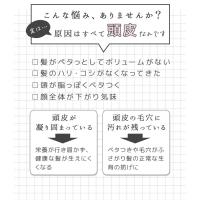 こんな悩み、ありませんか？
実は…
原因はすべて頭皮なんです
□髪がペタっとしてボリュームがない
□髪のハリ・コシがなくなってきた
□頭が脂っぽくベタつく
□顔全体が下がり気味
頭皮が
凝り固まっている
栄養が行き届かず、
健康な髪が生えにく
くなる
頭皮の毛穴に
汚れが残っている
ベタつきや毛穴がふ
さがり髪の正常な生
育の妨げに